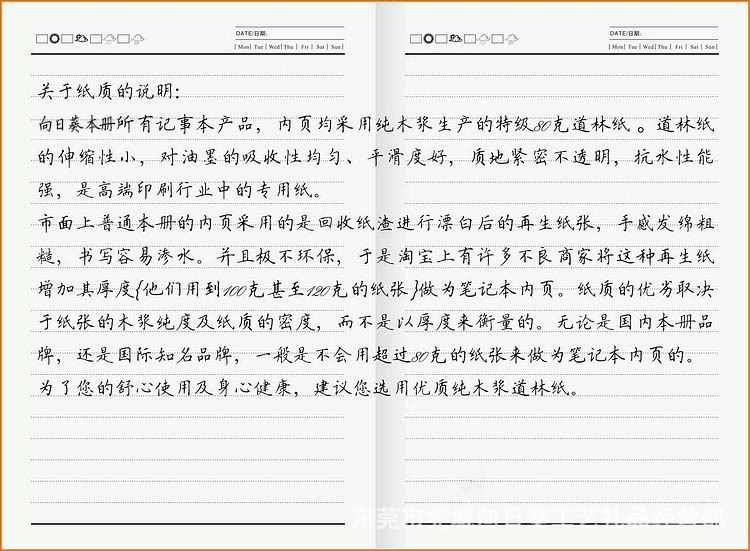 DATE/日期:
| Mon| Tue | Wed | Thu | Fri | Sat | Sun|
DATE/日期:
| Mon| Tue | Wed | Thu | Fri | Sat | Sun|
关于纸质的说明：
向日葵本册所有记事本产品，内页均采用纯木浆生产的特级80克道林纸。道林纸
的伸缩性小，对油墨的吸收性均匀、平滑度好，质地紧密不透明，抗水性能
强，是高端印刷行业中的专用纸。
市面上普通本册的内页采用的是回收纸渣进行漂白后的再生纸张，手感发绵粗
糙，书写容易渗水。并且极不环保，于是淘宝上有许多不良商家将这种再生纸
增加其厚度{他们用到100克甚至120克的纸张}做为笔记本内页。纸质的优劣取决
于纸张的木浆纯度及纸质的密度，而不是以厚度来衡量的。无论是国内本册品
牌，还是国际知名品牌，一般是不会用超过80克的纸张来做为笔记本内页的。
为了您的舒心使用及身心健康，建议您选用优质纯木浆道林纸。
东莞市莞城向日葵工艺礼品经营部